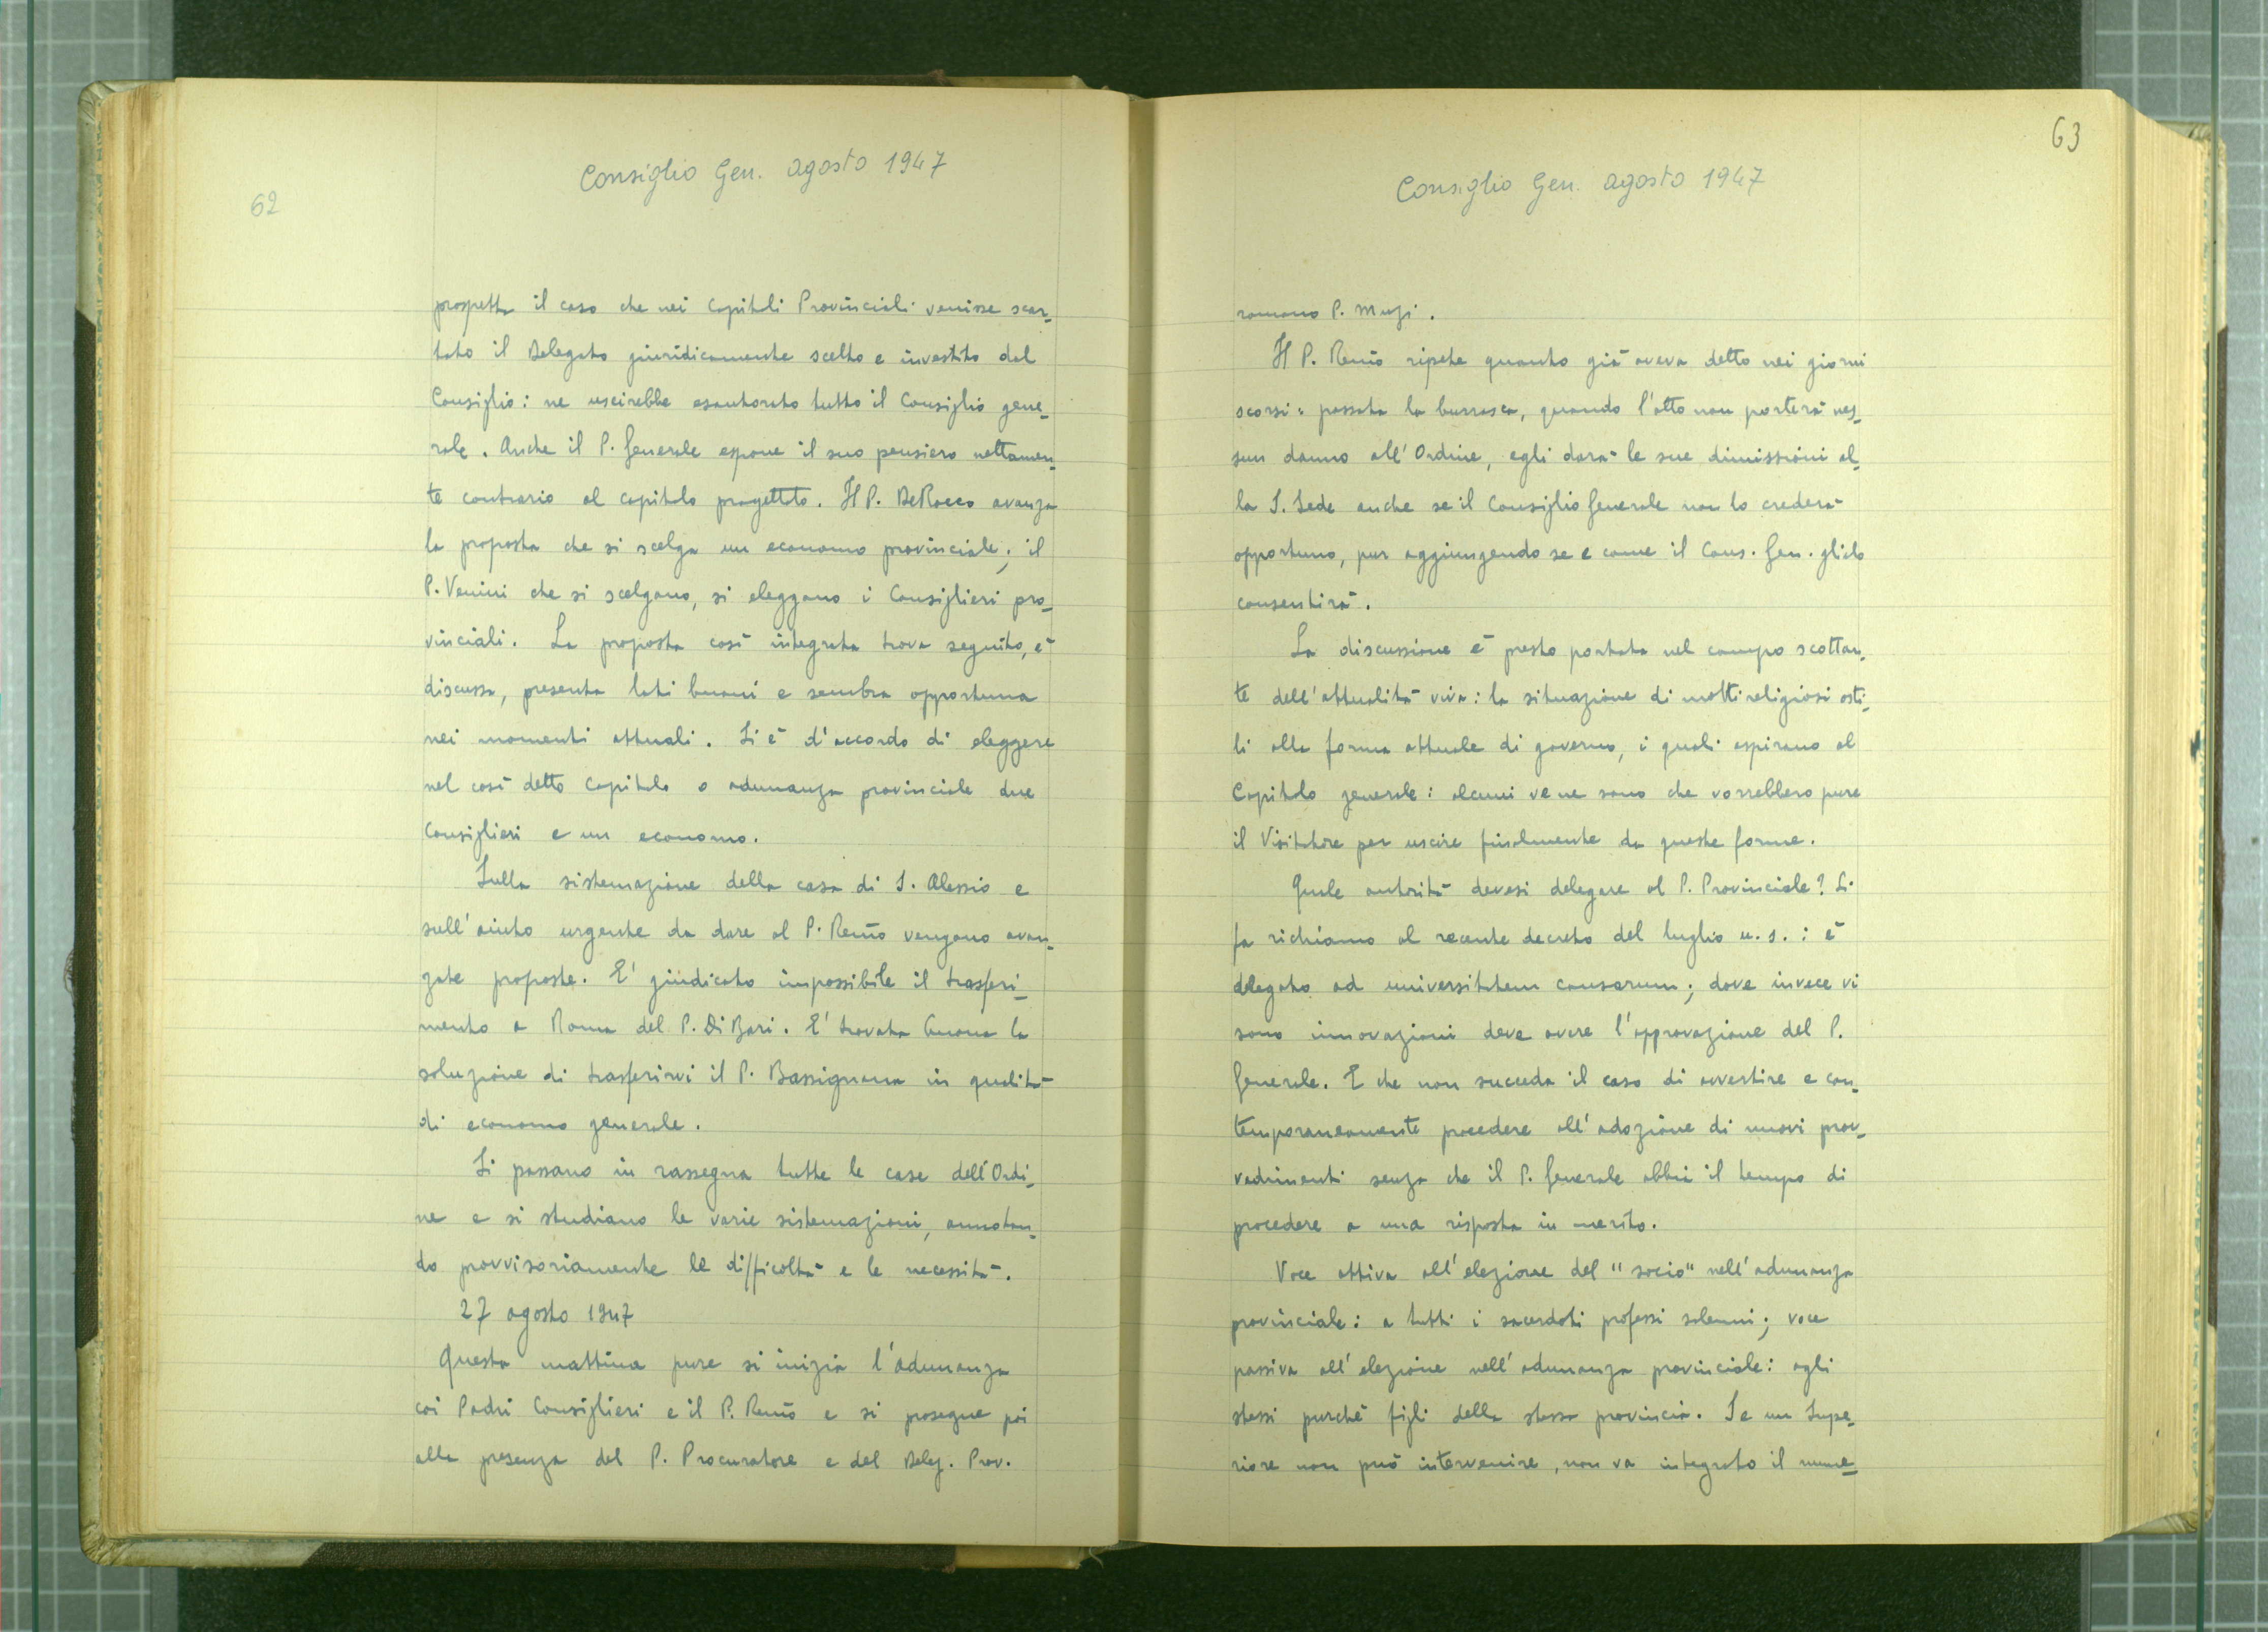 62
Consiglio Gen. agosto 1947
prospetta il caso che nei Capitoli Provinciali venisse scar-
tato il Delegato giuridicamente scelto e investito dal
Consiglio: ne uscirebbe esautorato tutto il Consiglio gene-
rale. Anche il P. Generale espone il suo pensiero nettamen-
te contrario al capitolo progettato. Il P. DeRocco avanza
la proposta che si scelga un economo provinciale; il
P. Venini che si scelgano, si eleggano i Consiglieri pro-
vinciali. La proposta così integrata trova seguito, è
discussa, presenta lati buoni e sembra opportuna
nei momenti attuali. Si è d'accordo di eleggere
nel così detto Capitolo o adunanza provinciale due
Consiglieri e un economo.
Sulla sistemazione della casa di S. Alessio e
sull'aiuto urgente da dare al P. Renò vengono avan-
zate proposte. E' giudicato impossibile il trasferi-
mento a Roma del P. Di Bari. E' trovata buona la
soluzione di trasferirvi il P. Bassignana in qualità
di economo generale.
Si passano in rassegna tutte le case dell'Ordi-
ne e si studiano le varie sistemazioni, annotan-
do provvisoriamente le difficoltà e le necessità.
27 agosto 1947
Questa mattina pure si inizia l'adunanza
coi Padri Consiglieri e il P. Renò e si prosegue poi
alla presenza del P. Procuratore e del Deleg. Prov.
63
Consiglio Gen. agosto 1947
romano P. Muzi.
Il P. Renò ripete quanto già aveva detto nei giorni
scorsi: passata la burrasca, quando l'atto non porterà nes-
sun danno all'Ordine, egli darà le sue dimissioni al-
la S. Sede anche se il Consiglio Generale non lo crederà
opportuno, pur aggiungendo se e come il Cons. Gen. glielo
consentirà.
La discussione è presto portata nel campo scottan-
te dell'attualità viva: la situazione di molti religiosi osti-
li alla forma attuale di governo, i quali aspirano al
Capitolo generale: alcuni ve ne sono che vorrebbero pure
il Visitatore per uscire finalmente da queste forme.
Quale autorità devesi delegare al P. Provinciale? Si
fa richiamo al recente decreto del luglio u. s.: è
delegato ad universitatem causarum; dove invece vi
sono innovazioni deve avere l'approvazione del P.
Generale. E che non succeda il caso di avvertire e con-
temporaneamente procedere all'adozione di nuovi prov-
vedimenti senza che il P. Generale abbia il tempo di
procedere a una risposta in merito.
Voce attiva all'elezione del "socio" nell'adunanza
provinciale: a tutti i sacerdoti professi solenni; voce
passiva all'elezione nell'adunanza provinciale: agli
stessi purché figli della stessa provincia. Se un Supe-
riore non può intervenire, non va integrato il nume-